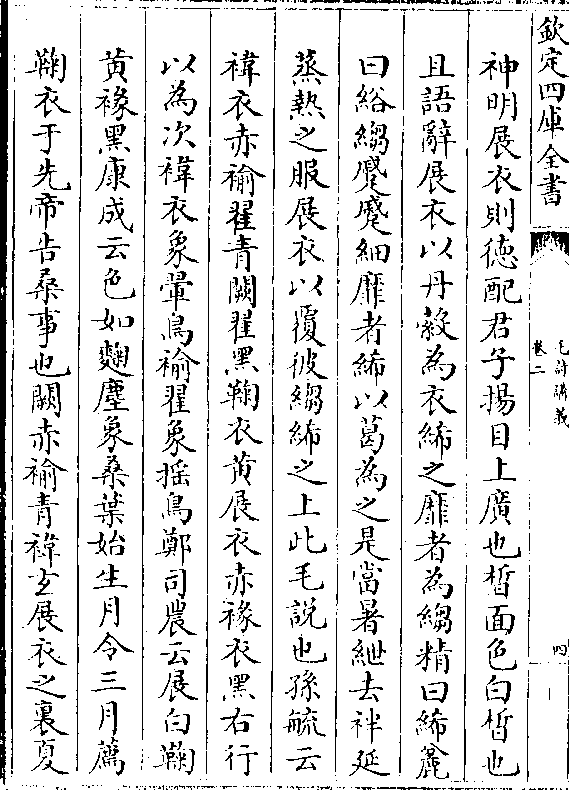 欽定四庫全書
毛詩講義
卷二
四
神明展衣則德配君子揚目上廣也晳面色白晳也
且語辭展衣以丹縠為衣絺之靡者為縐精曰絺麄
曰綌縐蹙蹙細靡者絺以葛為之是當暑紲去袢延
蒸熱之服展衣以覆彼縐絺之上此毛説也孫毓云
褘衣赤褕翟青闕翟黑鞠衣黄展衣赤褖衣黑右行
以為次褘衣象翬鳥褕翟象揺鳥鄭司農云展白鞠
黄褖黑康成云色如麴塵象桑葉始生月令三月薦
鞠衣于先帝告桑事也闕赤褕青褘玄展衣之裏夏